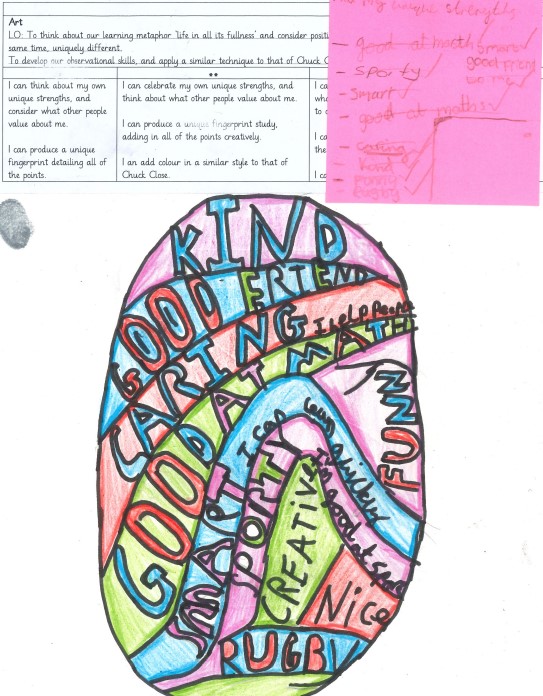 Art
LO: To think about our learning metaphor 'life in all its fullness' and consider positi
same time, uniquely different.
To develop our observational skills, and apply a similar technique to that of Chuck C
**
I can think about my own
unique strengths, and
consider what other people
value about me.
I can produce a unique
fingerprint detailing all of
the points.
I can celebrate my own unique strengths, and
think about what other people value about me.
I can produce a unique fingerprint study,
adding in all of the points creatively.
I an add colour in a similar style to that of
Chuck Close.
I ca
who
to c
I ca
the
I cc
my unique strengths
- good at maths
- sporty
- smart
- good at maths
- caring
- kind
- funny
KIND
GOOD FRIEND
CARING I help people
GOOD AT MATH
FUNN
SMART I can learn quickly
SPORTY I'm good at spor
CREATIVE
Nice
RUGBY